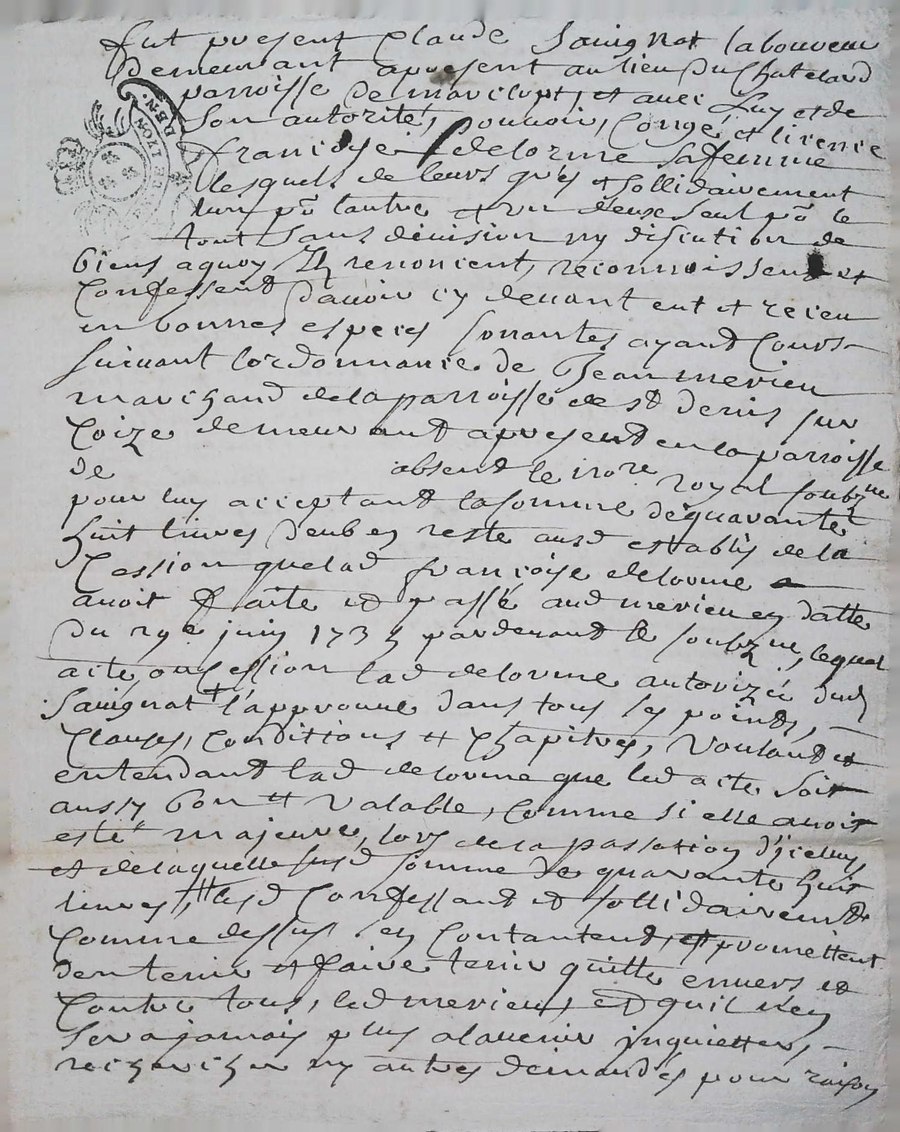 fut present Claude Savignat laboureur
demeurant apresent au lieu du Chatelard
parroisse de marclopt, et avec Luy et de
son autorité, pouvoir, Congé, et licence
GEN. LYON
francoise delorme sa femme
lesquels de leurs grés et sollidairement
lun pō lautre et un deux seul pō le
tout sans division ny discution de
biens aquoy Ils renoncent, reconnoissent et
Confessent d'avoir cy devant eut et receu
en bonnes especes sonnantes ayant Cours
suivant lordonnance de Jean merieu
marchand de la parroisse de st denis sur
Coize demeurant apresent en la parroisse
de absent le nore royal soubzne
pour luy acceptant la somme de quarante
huit livres deub en reste ausd establis de la
Cession que lad françoise delorme
avoit faite et passé aud merieu en datte
du 29e juin 1735 pardevant le soubzne, lequel
acte ou Cession lad delorme autorizéé dud
Savignat l'approuve dans tous ses points,
Clauses, Conditions et Chapitres, Voulant et
entendant lad delorme que led acte soit
aussy bon et valable, Comme si elle avoit
esté majeure, lors de la passation d'iceluy,
et de laquelle susd somme de quarante huit
livres, lesd Confessant et sollidairement
Comme dessus en Contantent, et promettent
den tenir et faire tenir quitte envers et
Contre tous, led merieu, et quil n'en
sera jamais plus alavenir inquietter,
rechercher ny autres demandes pour raison